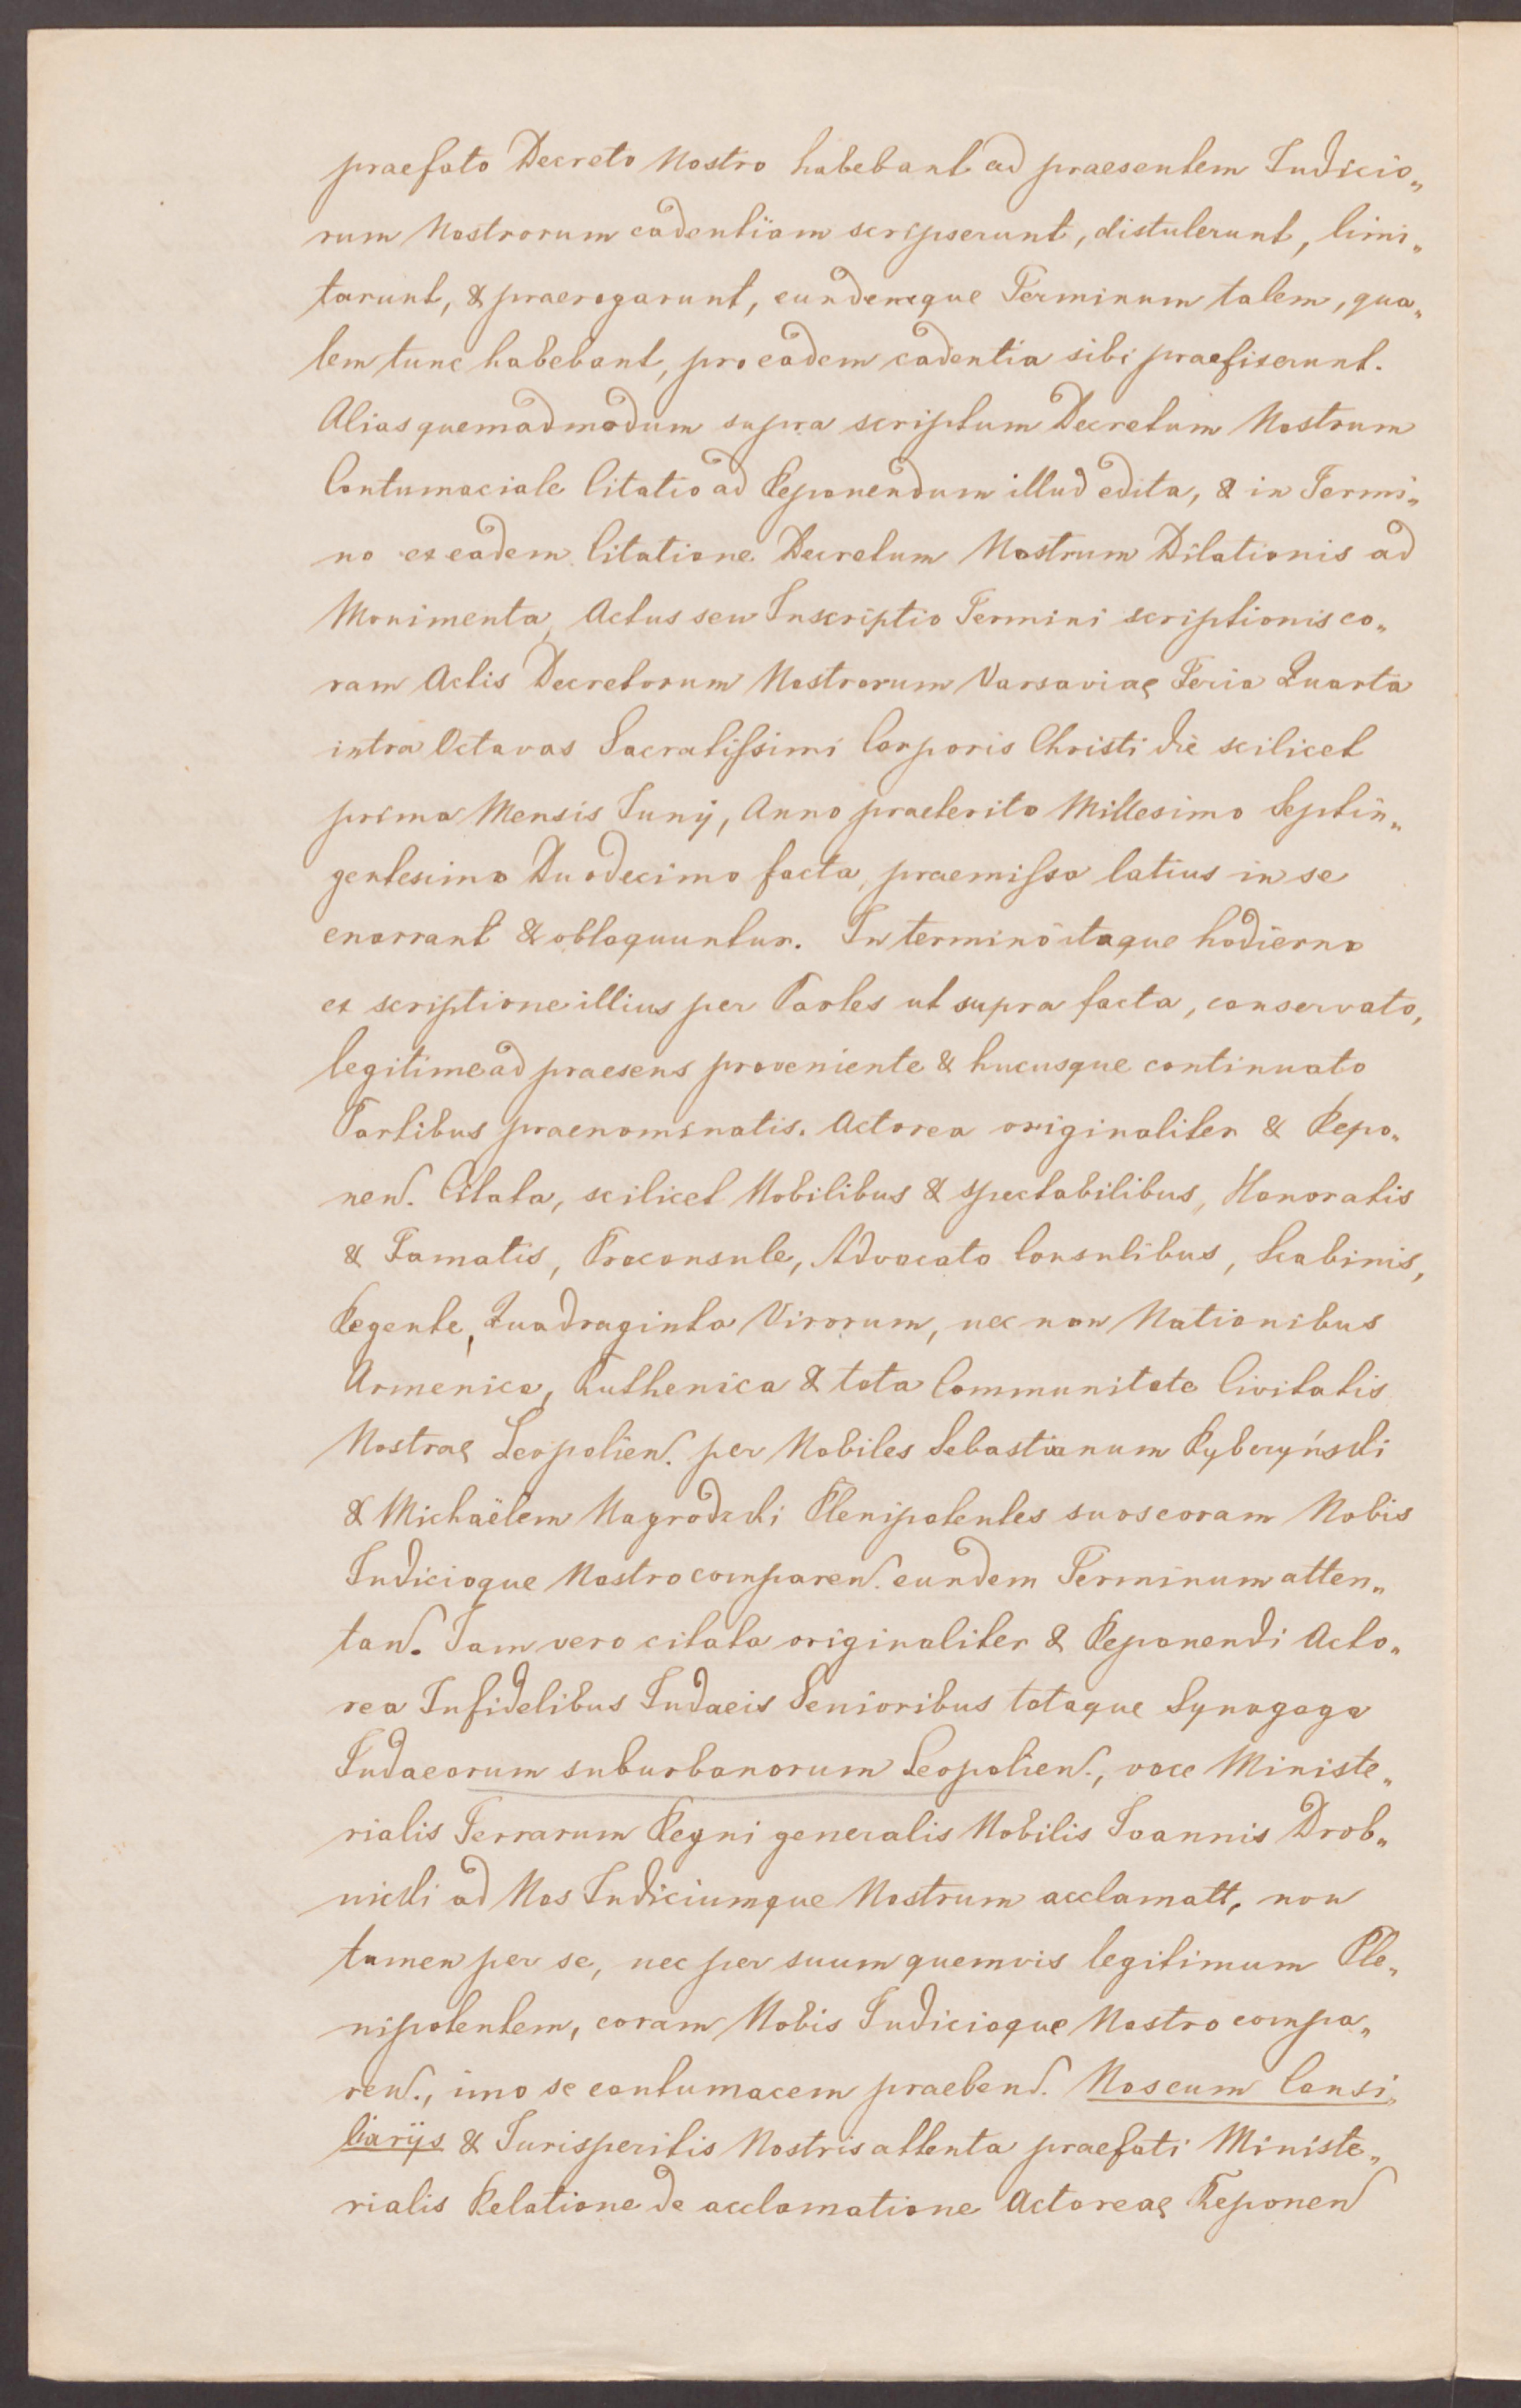 praefato Decreto Nostro habebant ad praesentem Judicio„
rum Nostrorum cadentiam scripserunt, distulerunt, limi„
tarunt, & praerogarunt, eundemque Terminum talem, qua„
lem tunc habebant, pro eadem cadentia sibi praefixerunt.
Alias quemadmodum supra scriptum Decretum Nostrum
Contumaciale Citatio ad Reponendum illud edita, & in Termi„
no ex eadem Citatione Decretum Nostrum Dilationis ad
Monimenta, Actus seu Inscriptio Termini scriptionis co„
ram Actis Decretorum Nostrorum Varsaviae Feria Quarta
intra Octavas Sacratissimi Corporis Christi die scilicet
prima Mensis Junij, Anno praeterito Millesimo Septin„
gentesimo Duodecimo facta, praemissa latius in se
enarrant & obloquuntur. In termino itaque hodierno
ex scriptione illius per Partes ut supra facta, conservato,
legitime ad praesens proveniente & hucusque continuato
Partibus praenominatis. Actorea originaliter & Repo„
nen. Citata, scilicet Nobilibus & spectabilibus, Honoratis
& Famatis, Proconsule, Advocato Consulibus, Scabinis,
Regente, Quadraginta Virorum, nec non Nationibus
Armenica, Ruthenica & tota Communitate Civitatis
Nostrae Leopolien. per Nobiles Sebastianum Rybczyński
& Michaëlem Nagrodzki Plenipotentes suos coram Nobis
Judicioque Nostro comparen. eundem Terminum atten„
tan. Jam vero citata originaliter & Reponendi Acto„
rea Infidelibus Judaeis Senioribus totaque Synagoga
Judaeorum suburbanorum Leopolien., voce Ministe„
rialis Terrarum Regni generalis Nobilis Joannis Drob„
nicki ad Nos Judiciumque Nostrum acclamatt, non
tamen per se, nec per suum quemvis legitimum Ple„
nipotentem, coram Nobis Judicioque Nostro compa„
ren., imo se contumacem praeben. Nos cum Consi„
liarijs & Jurisperitis Nostris attenta praefati Ministe„
rialis Relatione de acclamatione Actoreae Reponen